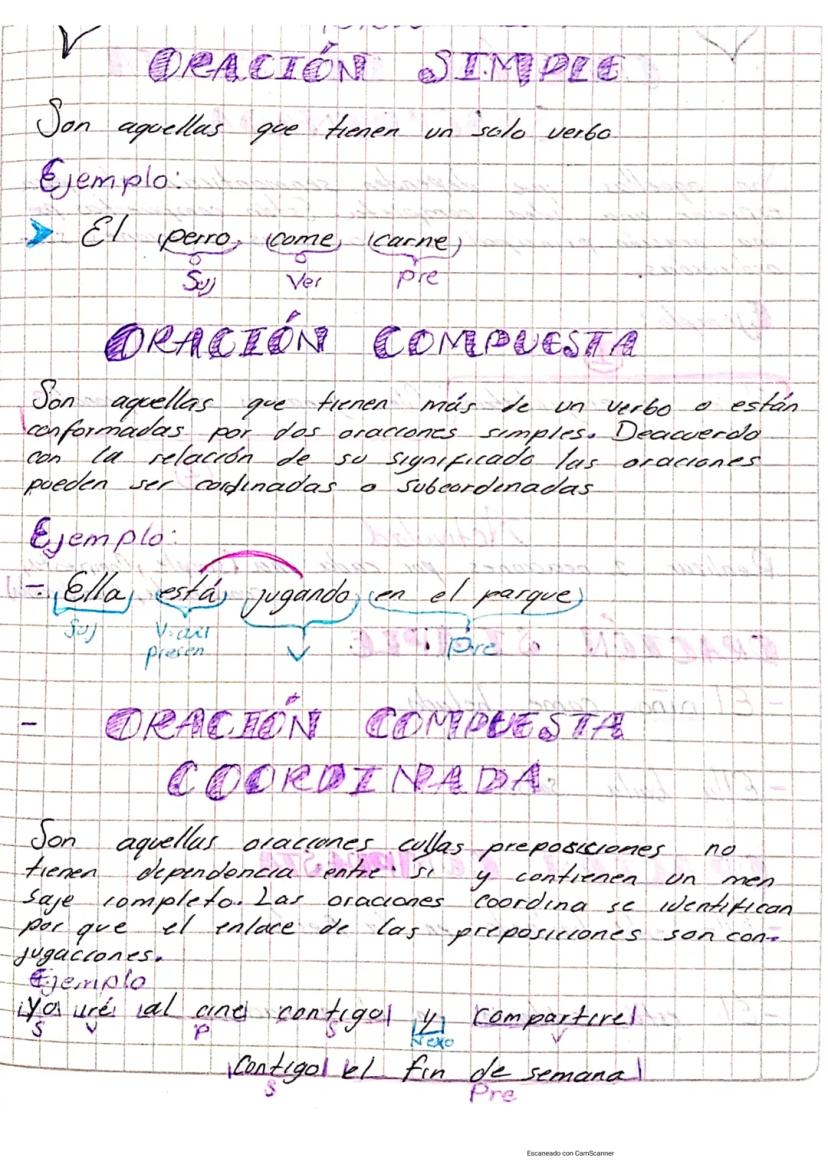 ORACIÓN SIMPLE
Son aquellas que tienen un solo verbo
Ejemplo:
El perro come carne
Suj Ver Pre
ORACIÓN COMPUESTA
Son aquellas que tienen más de un verbo o están
conformadas por dos oraciones simples. Deacuerdo
con la relación de su significado las oraciones
pueden ser cordinadas o subcordinadas
Ejemplo:
- Ella está jugando en el parque
Suj V. aux V Pre
presen
- ORACIÓN COMPUESTA
COORDINADA
Son aquellas oraciones cullas preposiciones no
tienen dependencia entre si y contienen un men
saje completo. Las oraciones coordina se identifican
por que el enlace de las preposiciones son con-
jugaciones.
Ejemplo
Yo iré al cine contigo y compartire
S V P S Nexo V
contigo el fin de semana
S Pre
Escaneado con CamScanner